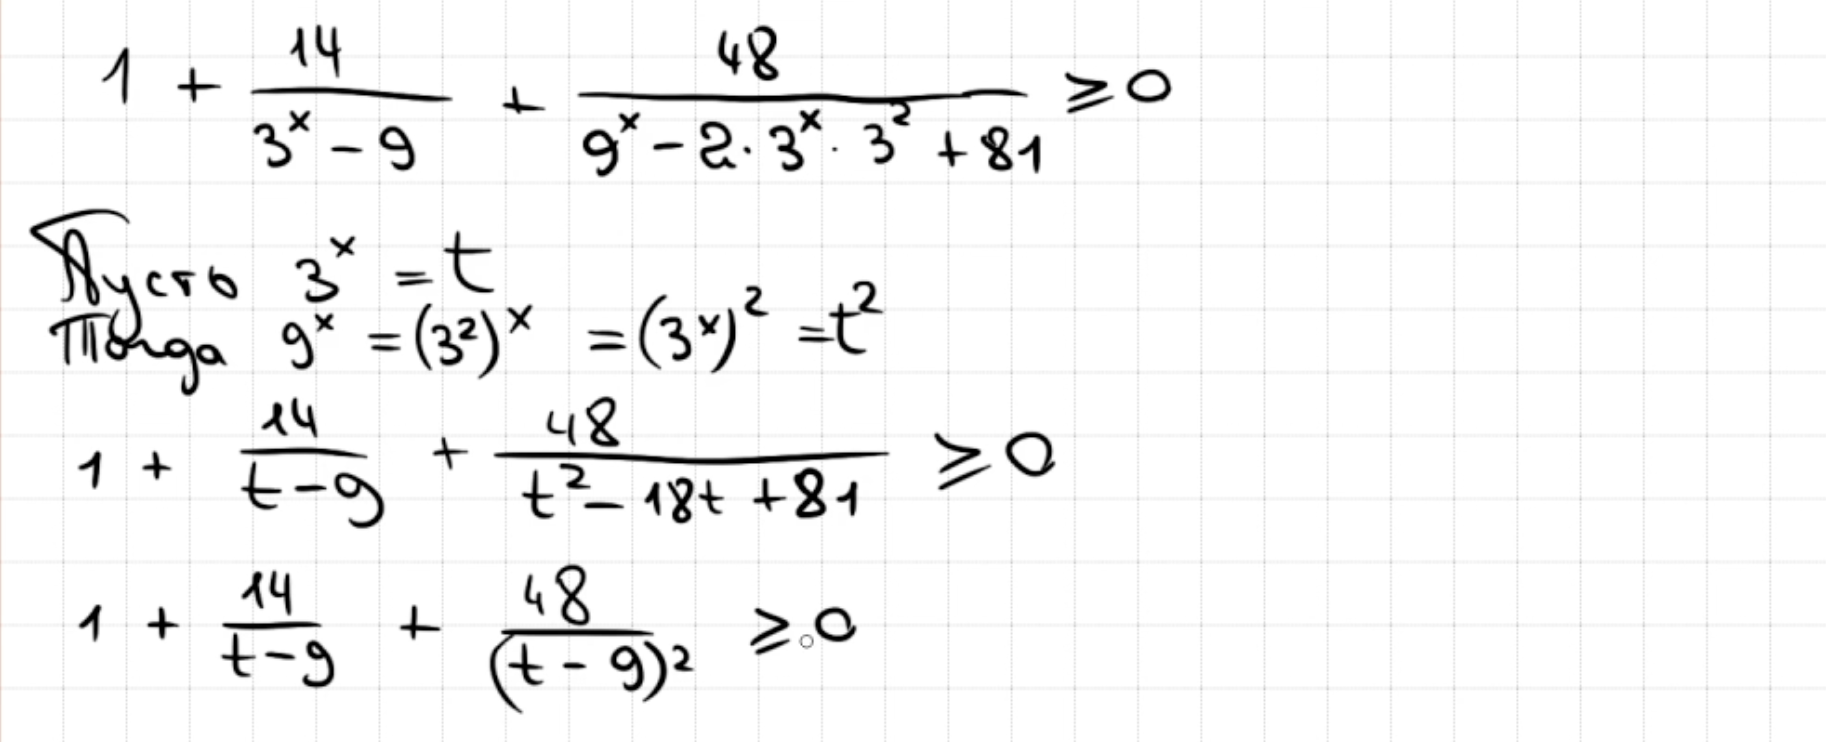 1 + 14/(3^x − 9) + 48/(9^x − 2 · 3^x · 3^2 + 81) ⩾ 0
Пусть 3^x = t
Тогда 9^x = (3^2)^x = (3^x)^2 = t^2
1 + 14/(t − 9) + 48/(t^2 − 18t + 81) ⩾ 0
1 + 14/(t − 9) + 48/(t − 9)^2 ⩾ 0